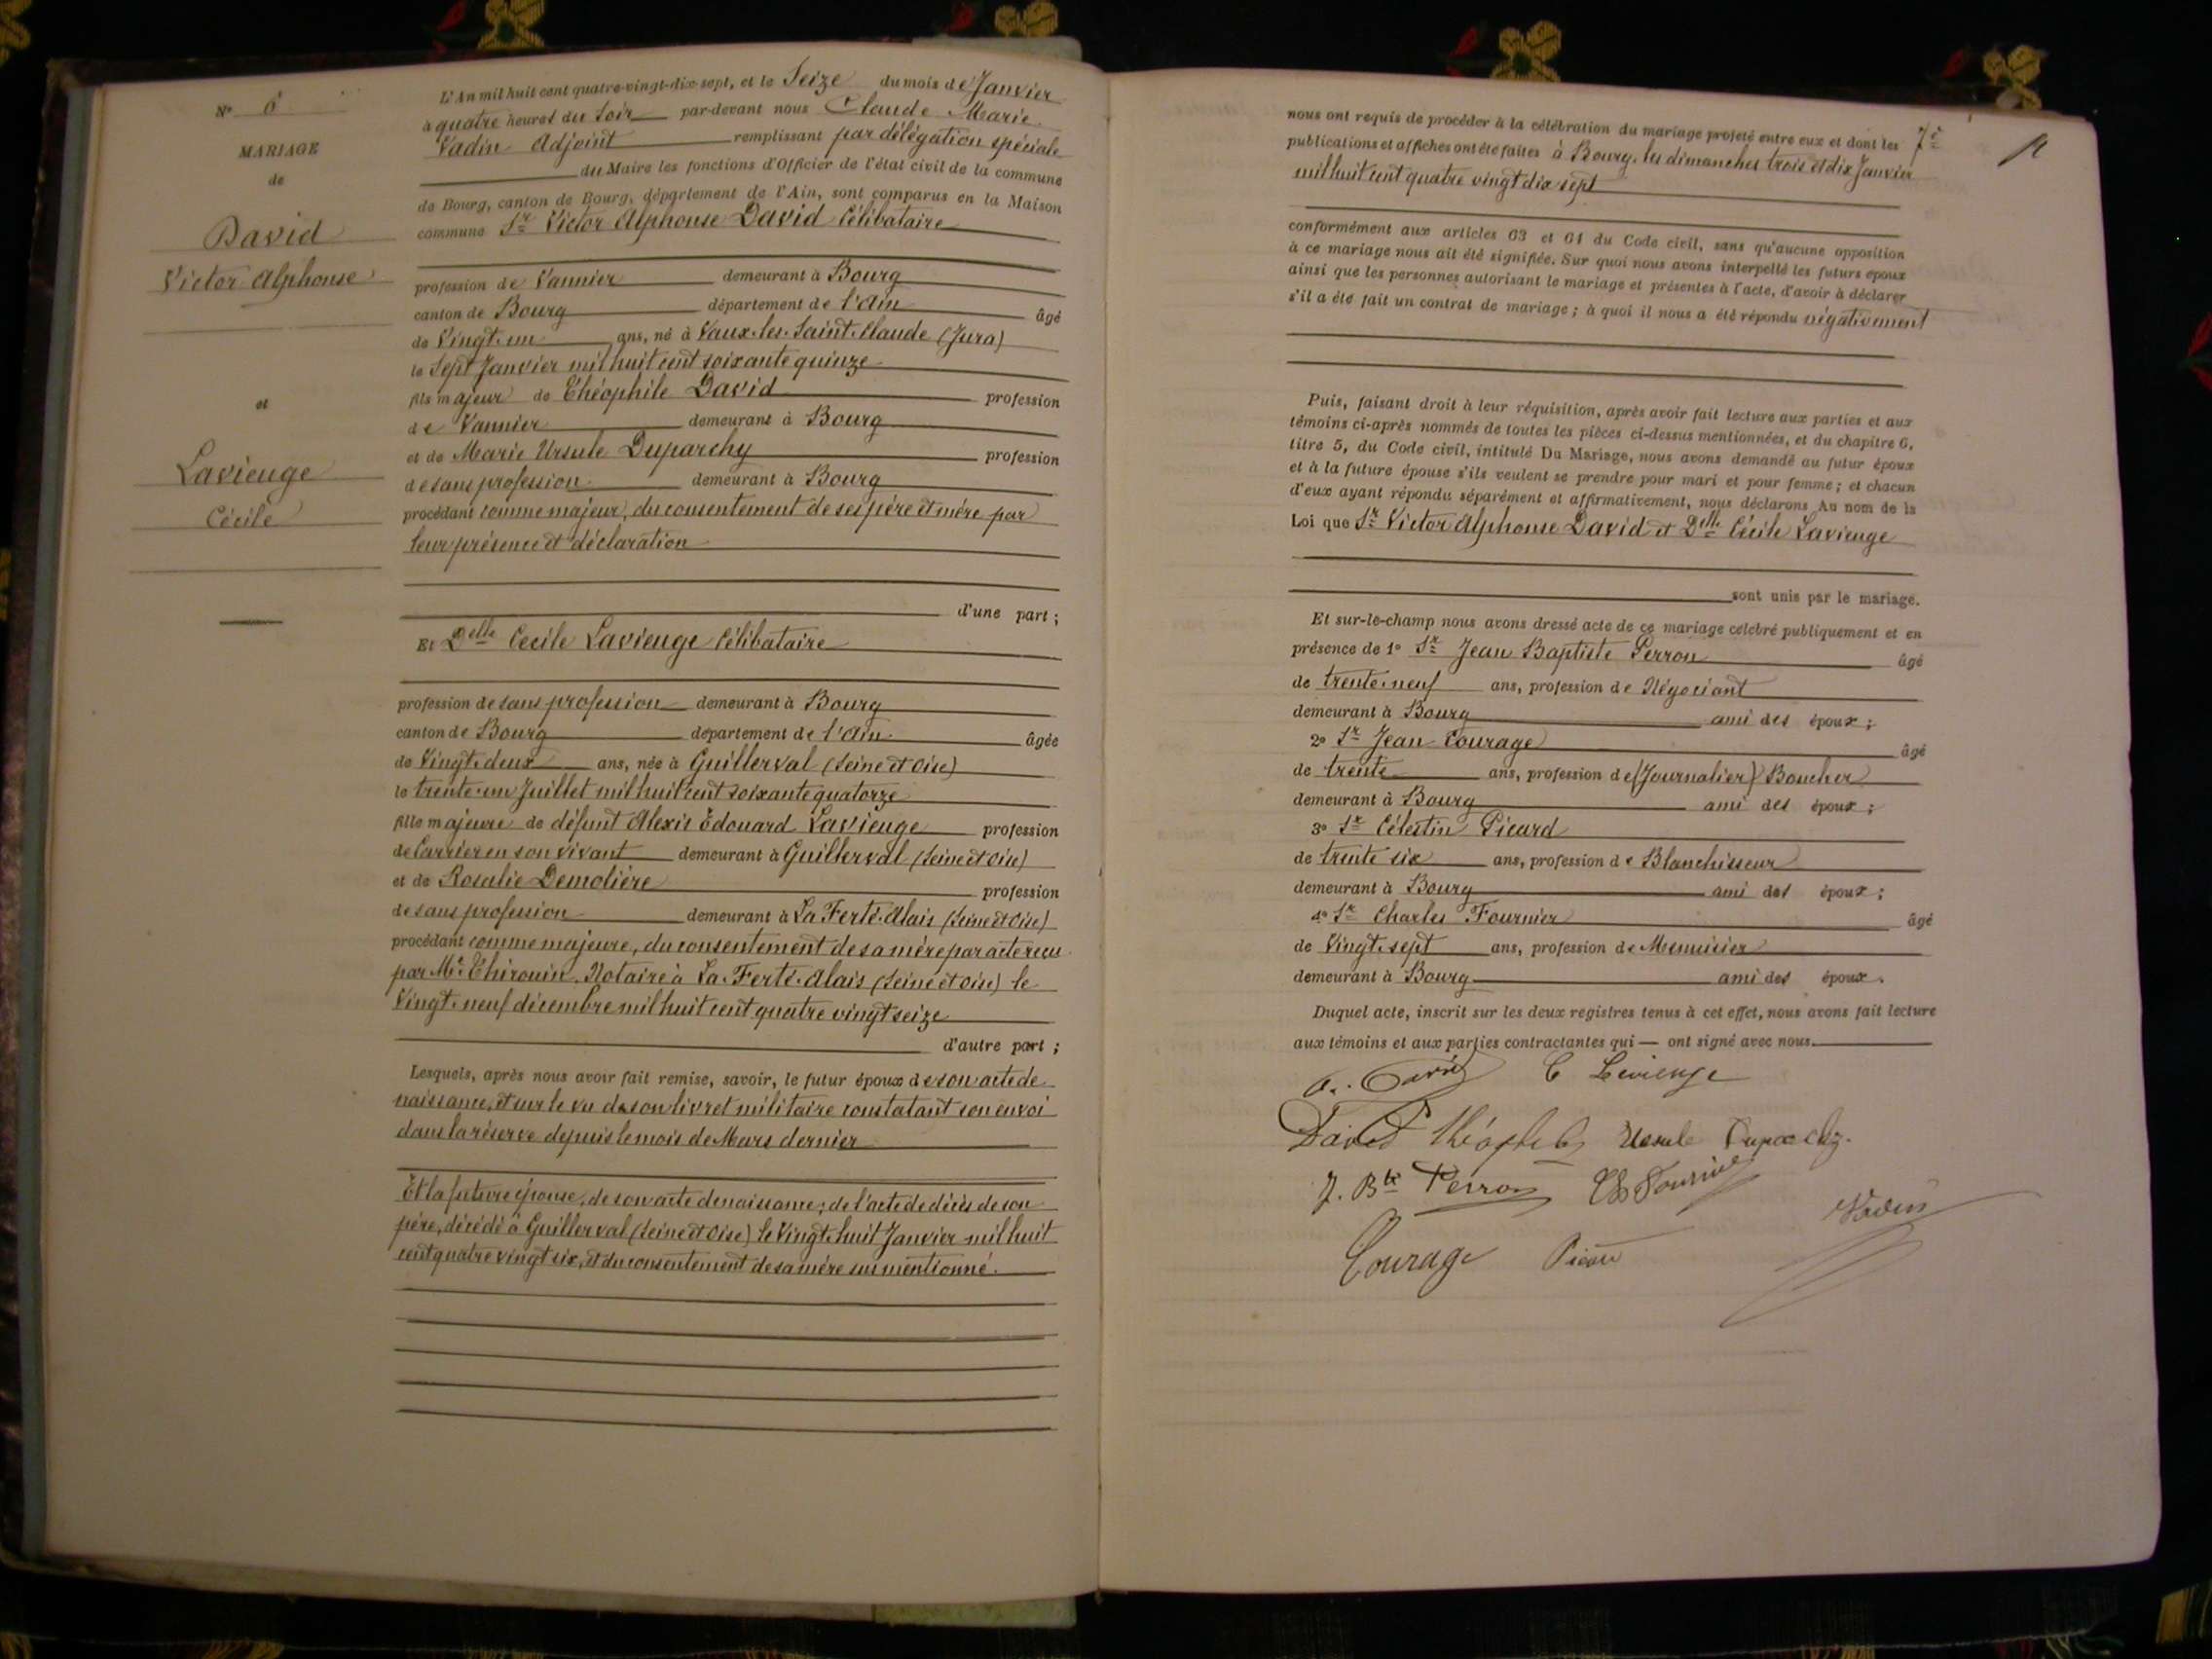 N° 6
MARIAGE
de
David
Victor Alphonse
et
Lavienge
Cécile
L'An mil huit cent quatre-vingt-dix-sept, et le Seize du mois de Janvier
à quatre heures du Soir par-devant nous Claude Marie
Vadin Adjoint remplissant par délégation spéciale
du Maire les fonctions d'Officier de l'état civil de la commune
de Bourg, canton de Bourg, département de l'Ain, sont comparus en la Maison
commune Sr Victor Alphonse David Célibataire
profession de Vannier demeurant à Bourg
canton de Bourg département de l'Ain âgé
de Vingt-un ans, né à Vaux-les-Saint-Claude (Jura)
le Sept Janvier mil huit cent soixante quinze
fils majeur de Théophile David profession
de Vannier demeurant à Bourg
et de Marie Ursule Duparchy profession
de sans profession demeurant à Bourg
procédant comme majeur, du consentement de ses père et mère par
leur présence et déclaration
d'une part ;
Et Delle Cecile Lavienge Célibataire
profession de sans profession demeurant à Bourg
canton de Bourg département de l'Ain âgée
de Vingt-deux ans, née à Guillerval (Seine et Oise)
le trente-un Juillet mil huit cent soixante quatorze
fille majeure de défunt Alexis Edouard Lavienge profession
de Carrier en son vivant demeurant à Guillerval (Seine et Oise)
et de Rosalie Demolière profession
de sans profession demeurant à La Ferté-Alais (Seine et Oise)
procédant comme majeure, du consentement de sa mère par acte reçu
par Me Thirouin, Notaire à La-Ferté-Alais (Seine et Oise) le
Vingt-neuf décembre mil huit cent quatre vingt seize
d'autre part ;
Lesquels, après nous avoir fait remise, savoir, le futur époux de son acte de
naissance, et sur le vu de son livret militaire constatant son envoi
dans la réserve depuis le mois de Mars dernier
Et la future épouse, de son acte de naissance ; de l'acte de décès de son
père, décédé à Guillerval (Seine et Oise) le Vingt-huit Janvier mil huit
cent quatre vingt six, et du consentement de sa mère susmentionné.
nous ont requis de procéder à la célébration du mariage projeté entre eux et dont les 7e
publications et affiches ont été faites à Bourg, les dimanches trois et dix Janvier
mil huit cent quatre vingt dix sept
conformément aux articles 63 et 64 du Code civil, sans qu'aucune opposition
à ce mariage nous ait été signifiée. Sur quoi nous avons interpellé les futurs époux
ainsi que les personnes autorisant le mariage et présentes à l'acte, d'avoir à déclarer
s'il a été fait un contrat de mariage ; à quoi il nous a été répondu négativement
Puis, faisant droit à leur réquisition, après avoir fait lecture aux parties et aux
témoins ci-après nommés de toutes les pièces ci-dessus mentionnées, et du chapitre 6,
titre 5, du Code civil, intitulé Du Mariage, nous avons demandé au futur époux
et à la future épouse s'ils veulent se prendre pour mari et pour femme ; et chacun
d'eux ayant répondu séparément et affirmativement, nous déclarons Au nom de la
Loi que Sr Victor Alphonse David et Delle Cécile Lavienge
sont unis par le mariage.
Et sur-le-champ nous avons dressé acte de ce mariage célébré publiquement et en
présence de 1° Sr Jean Baptiste Perron âgé
de trente-neuf ans, profession de Négociant
demeurant à Bourg ami des époux ;
2° Sr Jean Courage âgé
de trente ans, profession de (Journalier) Boucher
demeurant à Bourg ami des époux ;
3° Sr Célestin Picard
de trente six ans, profession de Blanchisseur
demeurant à Bourg ami des époux ;
4° Sr Charles Fournier âgé
de Vingt-sept ans, profession de Menuisier
demeurant à Bourg ami des époux.
Duquel acte, inscrit sur les deux registres tenus à cet effet, nous avons fait lecture
aux témoins et aux parties contractantes qui — ont signé avec nous.
David C Lavienge
David Théophile Ursule Duparchy.
J. Bte Perron Ch Fournier
Vadin
Courage Picard